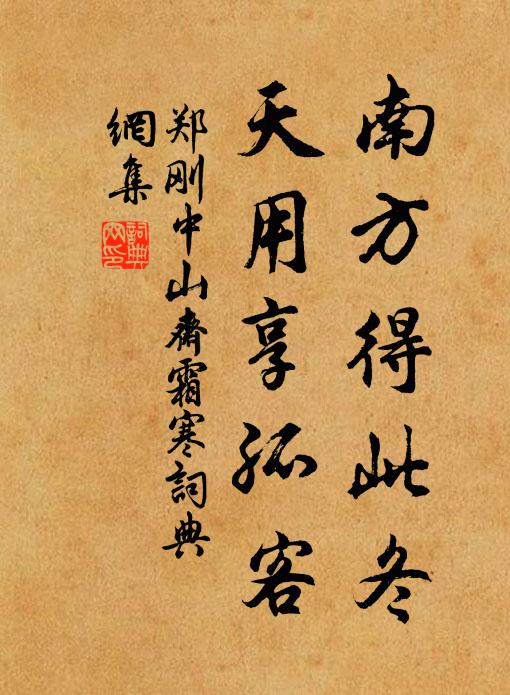 南方得此冬
天用享孤客
郑刚中山斋霜寒詞典
網集
詞典
网印